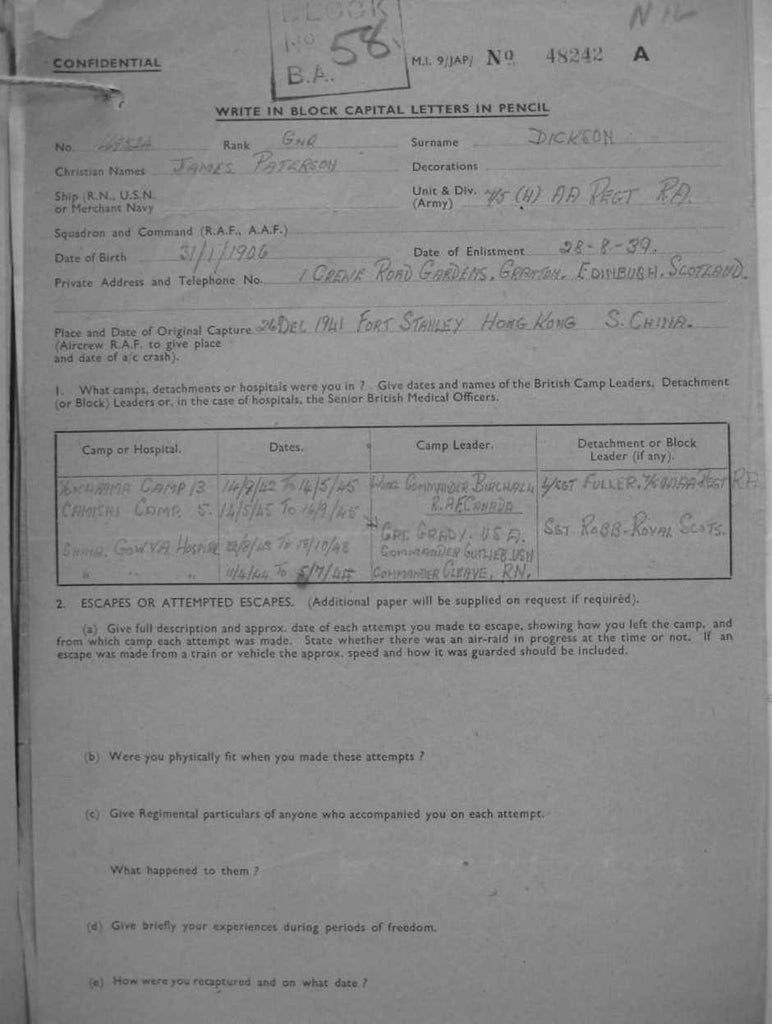 NIL
BLOCK
No 58
B.A.
CONFIDENTIAL
M.I. 9/JAP/ No 48242 A
WRITE IN BLOCK CAPITAL LETTERS IN PENCIL
No. Rank GNR Surname DICKSON
Christian Names JAMES PATERSON Decorations
Ship (R.N., U.S.N. or Merchant Navy
Unit & Div. (Army) (H) AA REGT RA.
Squadron and Command (R.A.F., A.A.F.)
Date of Birth 31/1/1906 Date of Enlistment 28-8-39.
Private Address and Telephone No. 1 CREWE ROAD GARDENS. GRANTON. EDINBURGH. SCOTLAND.
Place and Date of Original Capture 26 DEC 1941 FORT STANLEY HONG KONG S. CHINA.
(Aircrew R.A.F. to give place
and date of a/c crash).
1. What camps, detachments or hospitals were you in ? Give dates and names of the British Camp Leaders, Detachment
(or Block) Leaders or, in the case of hospitals, the Senior British Medical Officers.
Camp or Hospital. Dates. Camp Leader. Detachment or Block Leader (if any).
CAMP 13 TO 14/5/45 WING COMMANDER BIRCHALL L/SGT FULLER. AA REGT RA
R.A.F CANADA
CAMISHI CAMP. 5. 14/5/45 TO 14/9/45 CPT. GRADY. USA. SGT ROBB-ROYAL SCOTS.
TO COMMANDER USN
" " " TO 5/7/45 COMMANDER CLEAVE, RN.
2. ESCAPES OR ATTEMPTED ESCAPES. (Additional paper will be supplied on request if required).
(a) Give full description and approx. date of each attempt you made to escape, showing how you left the camp, and
from which camp each attempt was made. State whether there was an air-raid in progress at the time or not. If an
escape was made from a train or vehicle the approx. speed and how it was guarded should be included.
(b) Were you physically fit when you made these attempts ?
(c) Give Regimental particulars of anyone who accompanied you on each attempt.
What happened to them ?
(d) Give briefly your experiences during periods of freedom.
(e) How were you recaptured and on what date ?